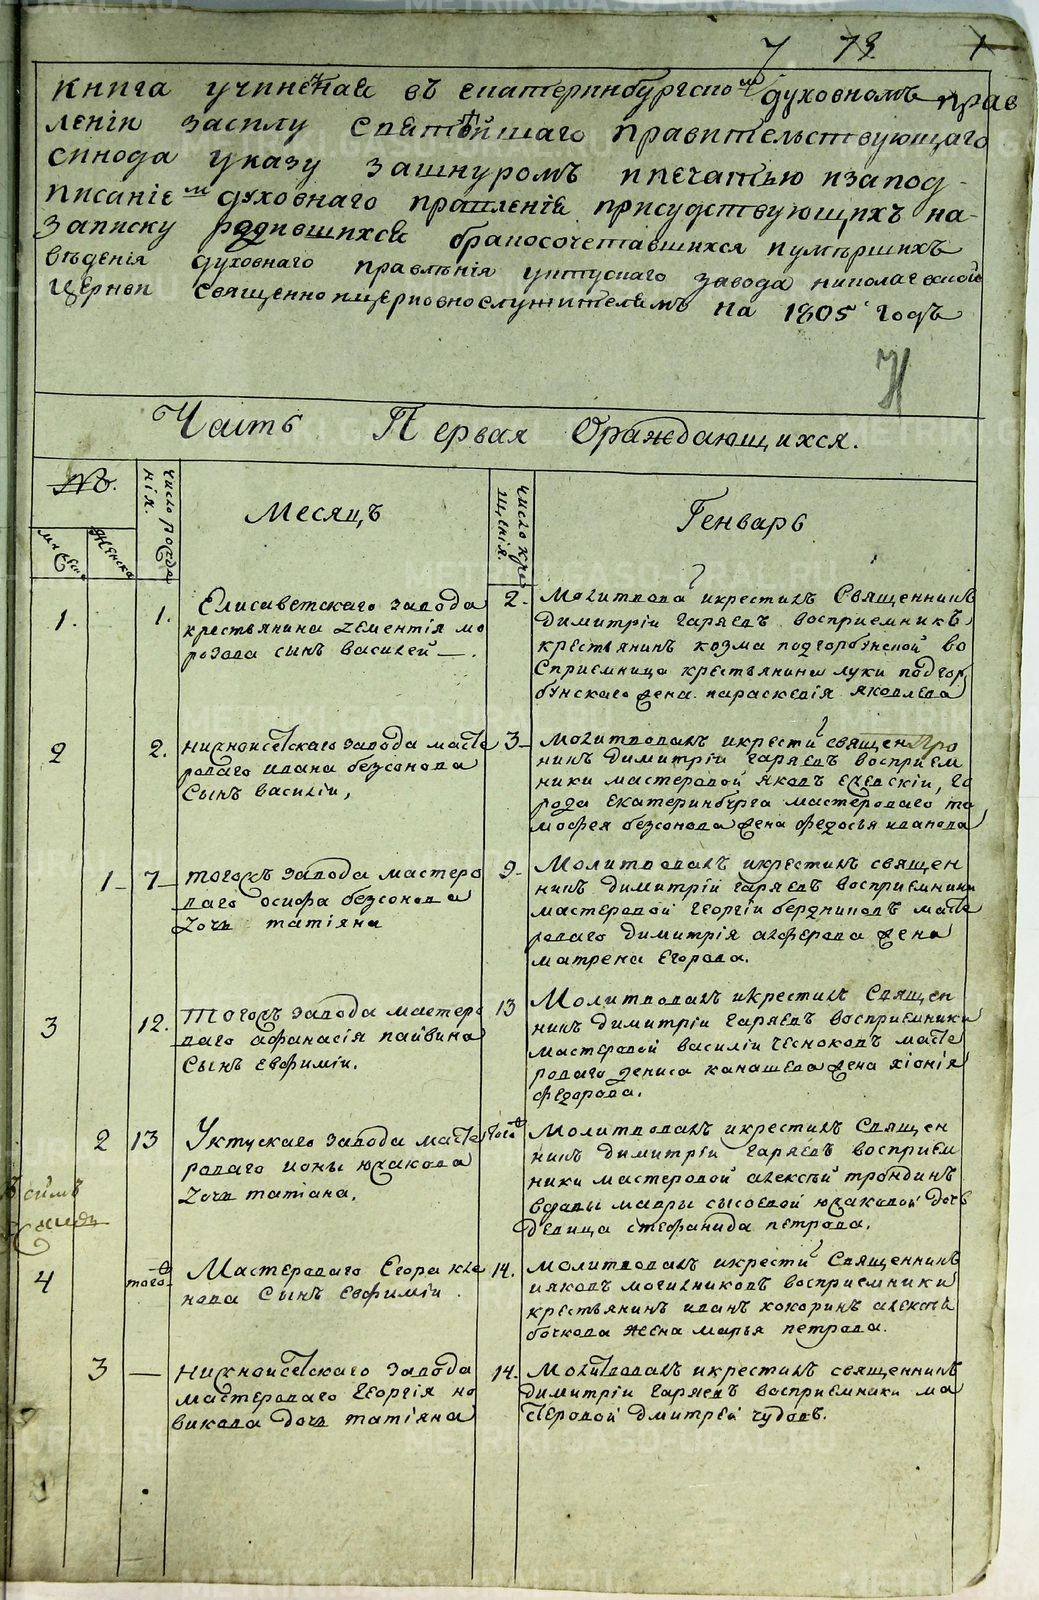 7 73 1
Книга учиненная въ екатеринбургскомъ духовномъ прав
ленїи засилу святѣйшаго правительствующаго
синода указу зашнуромъ ипечатью изапод-
писанїемъ духовнаго правленїя присудствующихъ на-
записку родившихся бракосочетавшихся иумершихъ
вѣденїя духовнаго правлѣнїя уктускаго завода николаевской
церкви священно ицерковнослужителямъ на 1805 годъ
Часть Первая Оражdaющихся.
№.
мужеска
женска
число рожде
нїя.
Месяцъ
число кре
щенїя.
Генварь
1. 1. Елисаветскаго завода
крестьянина дементїя мо
розова сынъ василей
2. Молитвова икрестилъ Священникъ
димитрїи гаряевъ восприемникъ
крестьянинъ козма подгорбунской во
сприемница крестьянина луки подгор
бунскаго жена параскевїя яковлева
2 2. нижноисетскаго завода масте
роваго ивана безсонова
сынъ василїи,
3 Молитвовалъ икрести священ
никъ димитрїи гаряевъ восприем
ники мастеровой яковъ елевскїи, го
рода екатеринбурга мастероваго ти
мофея безсонова жена федосья иванова
1 7 тогожъ завода мастеро
ваго осифа безсонова
дочь татїяна
9 Молитвовалъ икрестилъ священ
никъ димитрїи гаряевъ восприемники
мастеровой георгїи бердниковъ масте
роваго димитрїя алферова жена
матрена егорова.
3 12. тогожъ завода мастеро
ваго афанасїя пайвина
сынъ евфимїи.
13 Молитвовалъ икрестилъ Священ
никъ димитрїи гаряевъ восприемники
мастеровой василїи чесноковъ масте
роваго дениса канашева жена хїонїя
федорова.
2 13 Уктускаго завода масте
роваго ионы южакова
дочь татїана.
тогоже Молитвовалъ икрестилъ Священ
никъ димитрїи гаряевъ восприем
ники мастеровой алексѣй трондинъ
вдовы мавры сысоевой южаковой дочь
девица стефанида петрова.
4 тогоже Мастероваго Егора кле
нова Сынъ евфимїи.
14. Молитвовалъ икрести Священникъ
ияковъ могильниковъ восприемники
крестьянинъ иванъ кокоринъ алексѣя
бочкова жена марья петрова.
3 — нижноисетскаго завода
мастероваго георгїя но
викова дочь татїяна
14. Молитвовалъ икрестилъ священникъ
димитрїи гаряевъ восприемники ма
стеровой дмитрей чудовъ.
METRIKI.GASO-URAL.RU